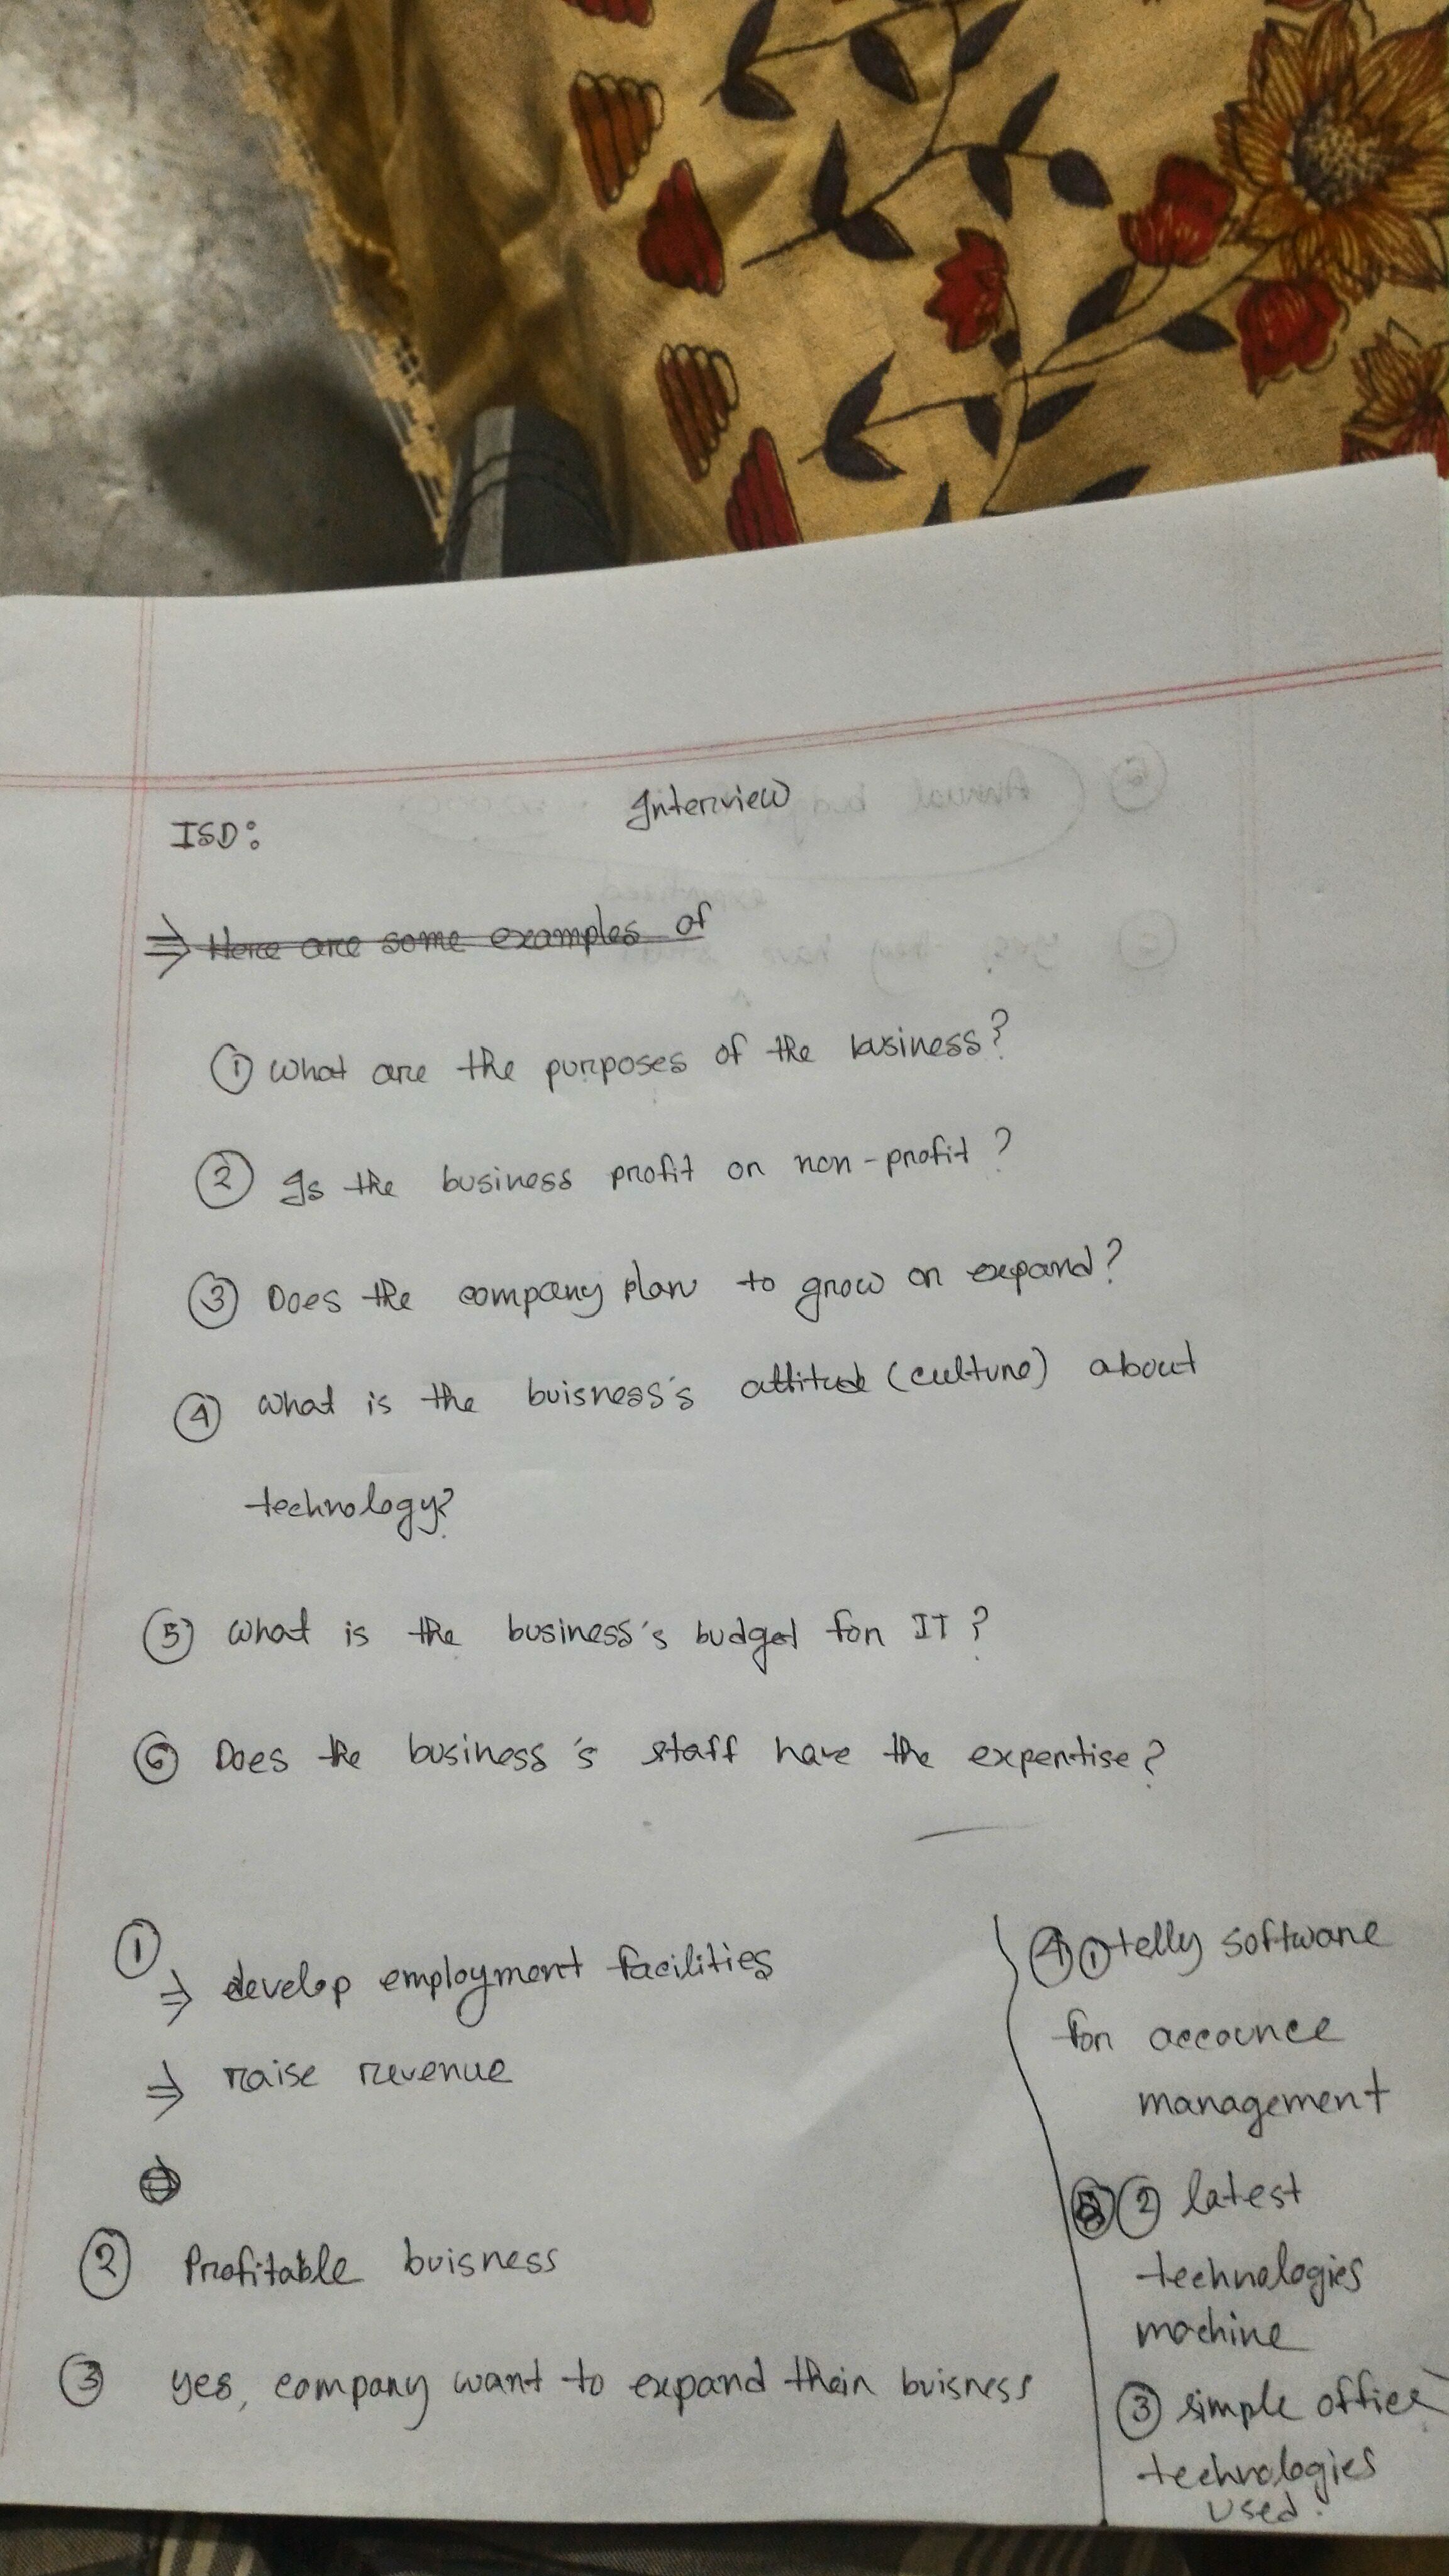 Interview
ISD:
⇒ Here are some examples of
① What are the purposes of the business?
② Is the business profit or non-profit?
③ Does the company plan to grow or expand?
④ What is the buisness's attitude (culture) about
technology?
⑤ What is the business's budget for IT?
⑥ Does the business's staff have the expertise?
①
⇒ develop employment facilities
⇒ raise revenue
② Profitable buisness
③ yes, company want to expand their buisness
④ ① telly software
for accounce
management
② latest
technologies
machine
③ simple office
technologies
used.